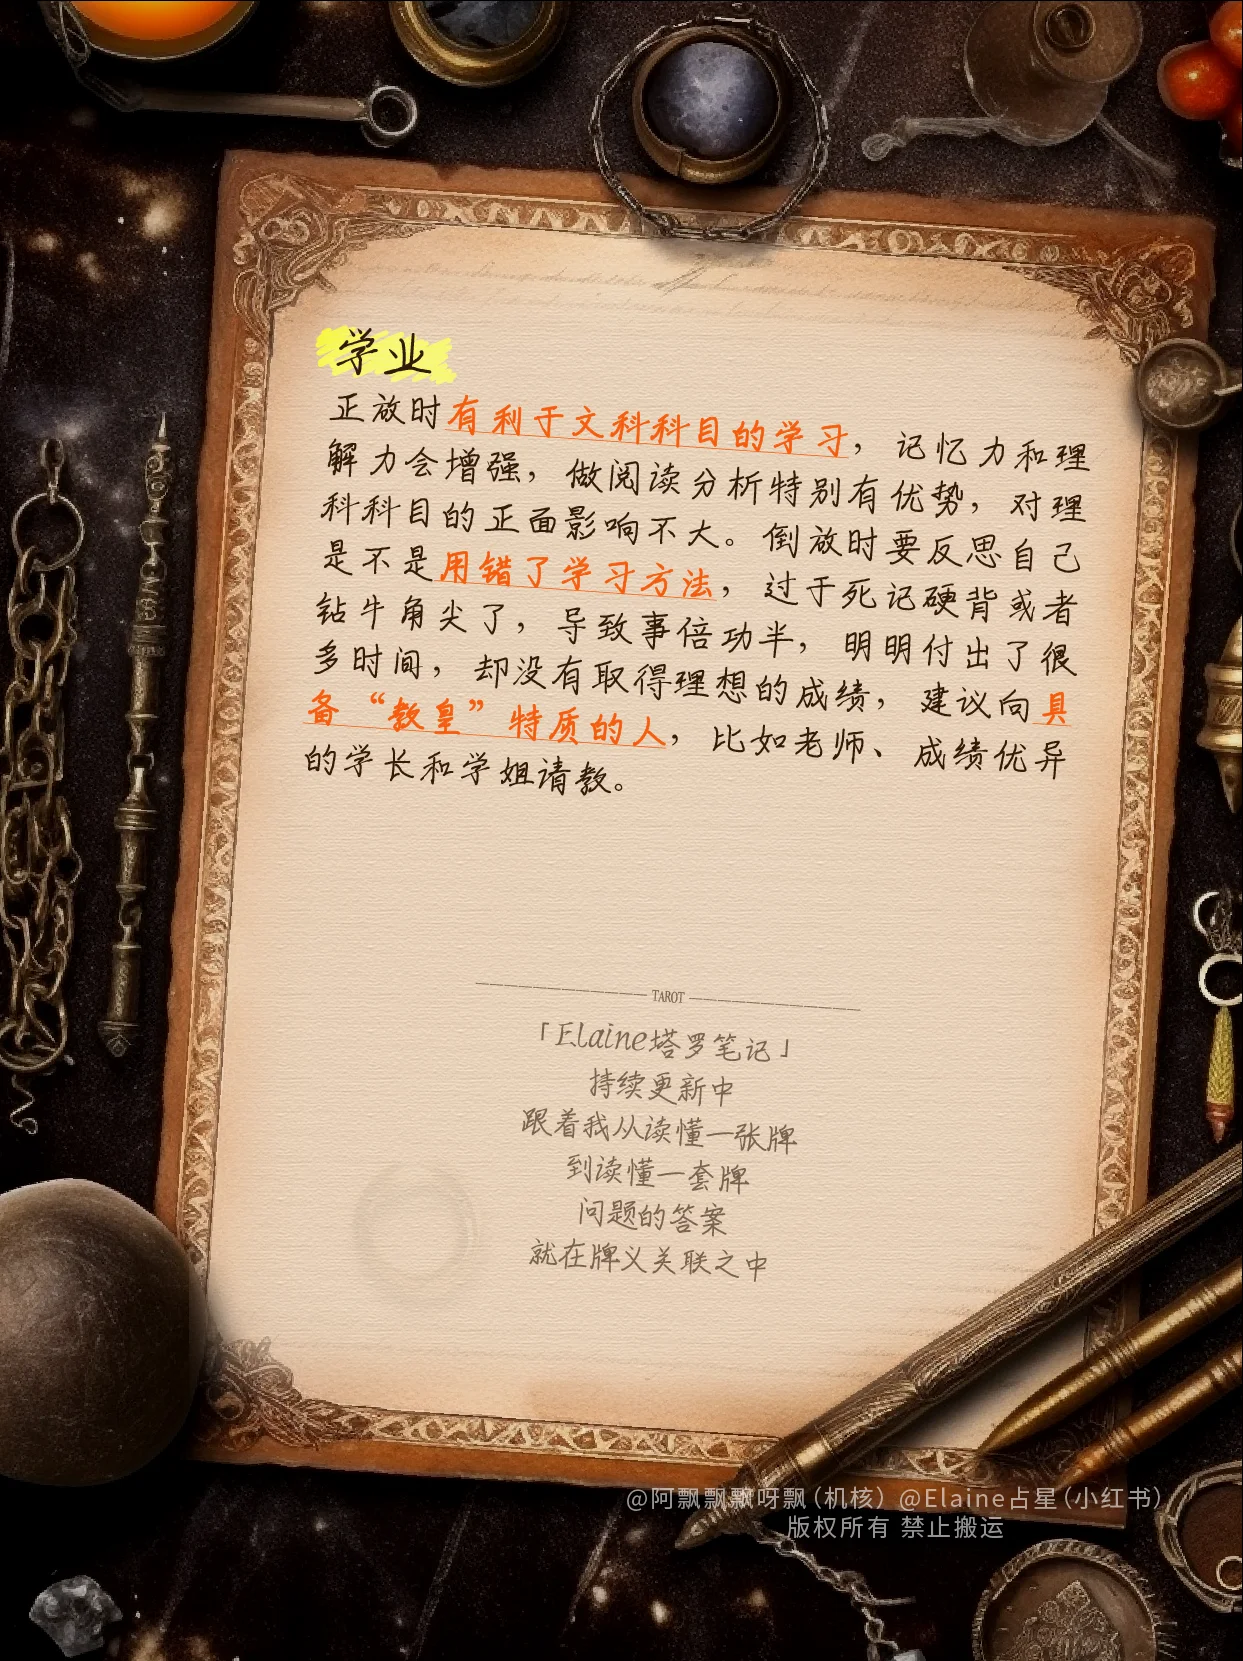 学业
正放时有利于文科科目的学习，记忆力和理
解力会增强，做阅读分析特别有优势，对理
科科目的正面影响不大。倒放时要反思自己
是不是用错了学习方法，过于死记硬背或者
钻牛角尖了，导致事倍功半，明明付出了很
多时间，却没有取得理想的成绩，建议向具
备“教皇”特质的人，比如老师、成绩优异
的学长和学姐请教。
TAROT
「Elaine塔罗笔记」
持续更新中
跟着我从读懂一张牌
到读懂一套牌
问题的答案
就在牌义关联之中
@阿飘飘飘呀飘(机核) @Elaine占星(小红书)
版权所有 禁止搬运